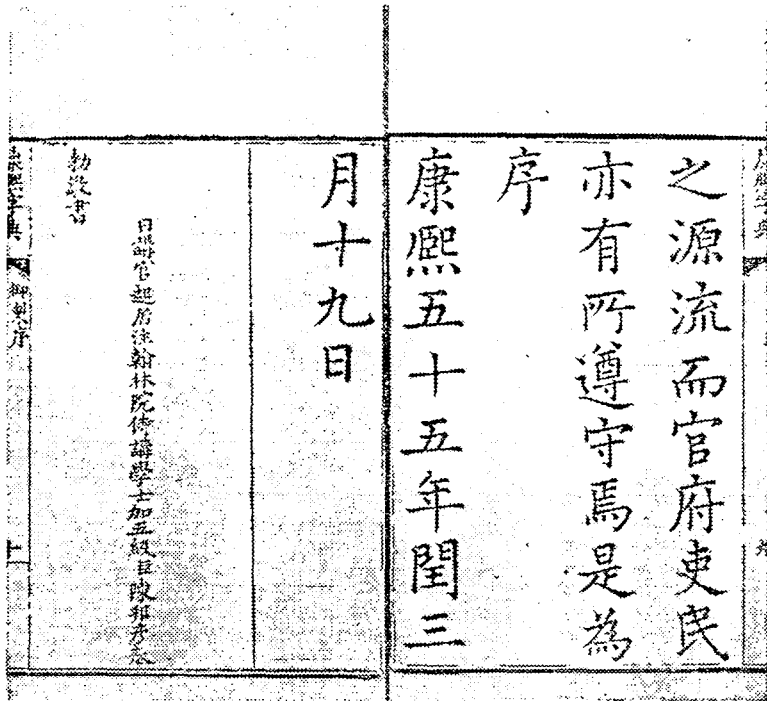 康熙字典
之源流而官府吏民
亦有所遵守焉是為
序
康熙五十五年閏三
月十九日
日講官起居注翰林院侍講學士加五級臣陳邦彥奉
勅敬書
康熙字典
御製序
十一